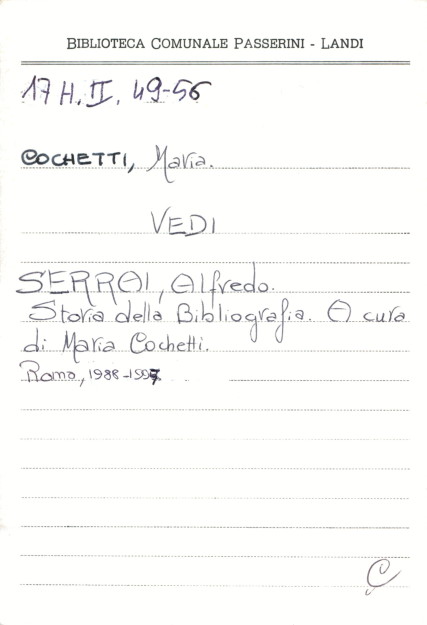 BIBLIOTECA COMUNALE PASSERINI - LANDI
17 H. II. 49-56
COCHETTI, Maria.
VEDI
SERRAI, Alfredo.
Storia della Bibliografia. A cura
di Maria Cochetti.
Roma, 1988-1997
C